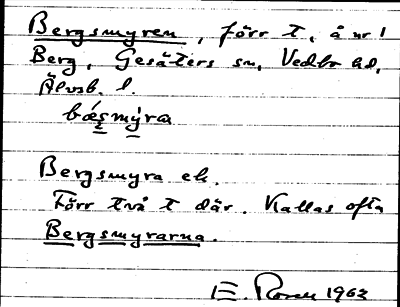 Bergsmyren, förr t, å nr 1
Berg, Gesäters sn, Vedbo hd,
Älvsb. l.
bæ̀smýra
Bergsmyra ek.
Förr två t där. Kallas ofta
Bergsmyrarna.
E. Rosen 1963